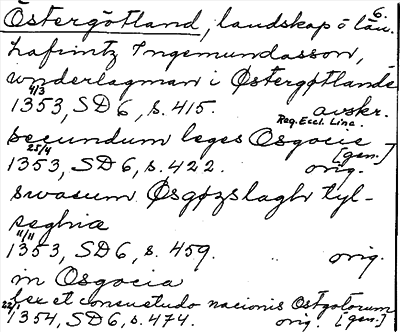 6.
Östergötland, landskap o län.
Lafrintz Ingemundasson,
underlagman i Østergøtlande
4/3
1353, SD 6, s. 415. avskr.
Reg. Eccl. Linc.
secundum leges Osgocie
25/4 [gen.]
1353, SD 6, s. 422. orig.
swasum Øsgøzslagh tyl-
seghia
11/11
1353, SD 6, s. 459. orig.
in Osgocia
lex et consuetudo nacionis Ostgotorum
22/1
1354, SD 6, s. 474. orig. [gen.]